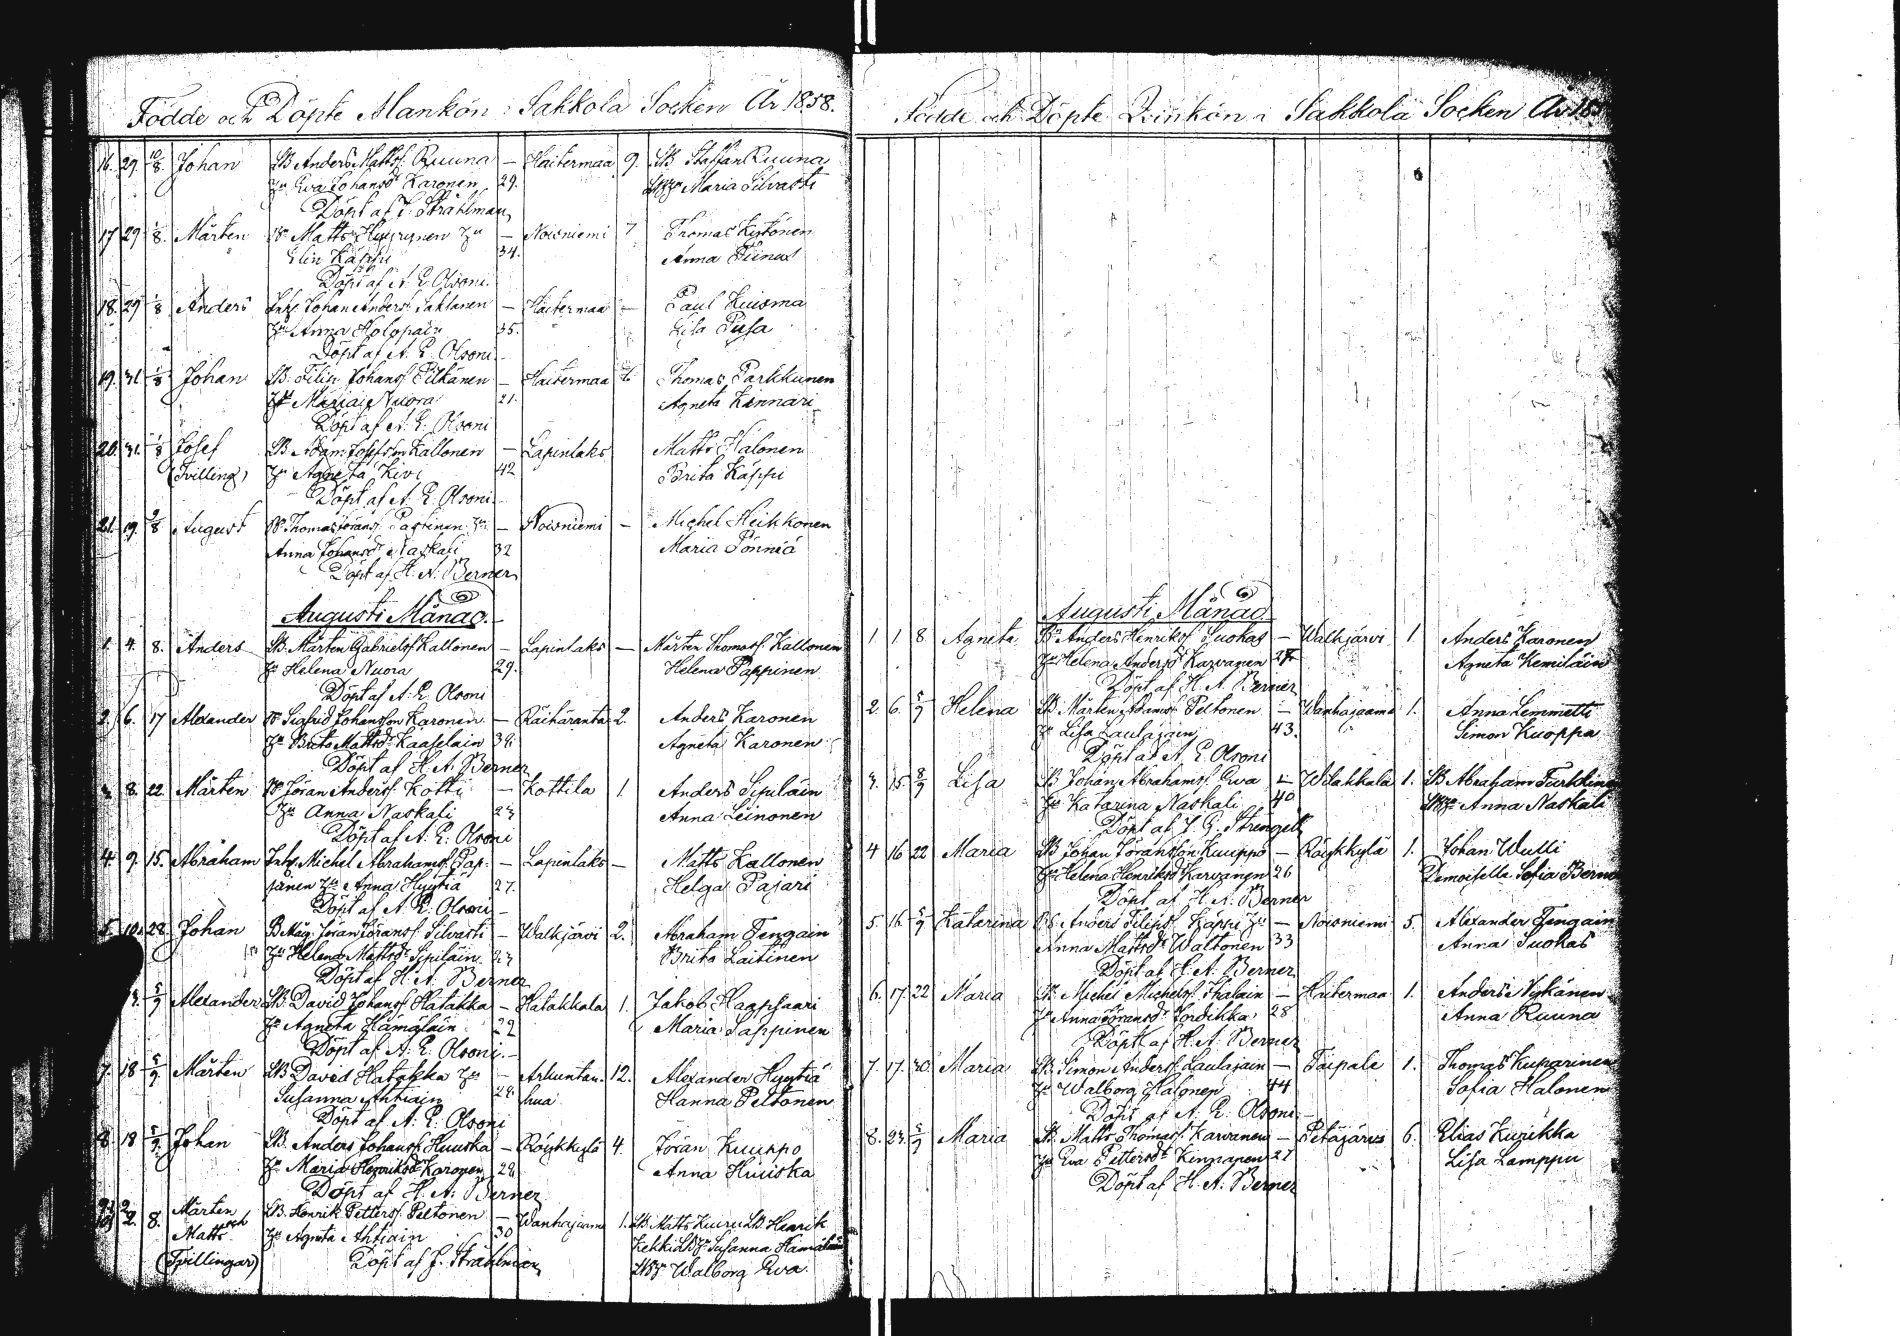 Födde och Döpte Mankön i Sakkola Socken År 1858.
16. 29. 10/8. Johan SB Anders Mattss. Ruuna — Haitermaa 9. SB Staffan Ruuna
Hu Eva Johansdr Karonen 29. Maria Silvasti
Döpt af J. Stråhlman
17 29 1/8. Mårten Matts Hyyrynen Hu — Noisniemi 7 Thomas
Elin Käppi 34. Anna
Döpt af A. E. Olsoni.
18. 29 1/8 Anders Inh. Johan Anderss. — Haitermaa — Paul Kiisma
Hu Anna Holopain 35. Lisa Pusa
Döpt af A. E. Olsoni.
19. 31. 1/8 Johan SB. Filip Johanss. Pitkänen — Haitermaa Thomas Parkkunen
Hu Maria Nuora 21. Agneta Kinnari
Döpt af A. E. Olsoni
20. 31. 1/8 Josef SB Adam Josefsson Kallonen — Lapinlaks Matts Halonen
(Tvilling) Hu Agneta Kivi 42 Brita Käppi
Döpt af A. E. Olsoni.
21. 19. 2/8 August Thomas Göranss. Pastinen Hu — Noisniemi — Michel Heikkonen
Anna Johansdr Naskali 32 Maria Pönniä
Döpt af H. A. Berner
Augusti Månad.
1. 4. 8. Anders SB. Mårten Gabrielss. Kallonen — Lapinlaks — Mårten Thomass. Kallonen
Hu Helena Nuora 29. Helena Pappinen
Döpt af A. E. Olsoni
2. 6. 17 Alexander Sigfrid Johansson Karonen — Räihäranta 2. Anders Karonen
Hu Brita Mattsdr Kaaselain 38. Agneta Karonen
Döpt af H. A. Berner
3. 8. 22 Mårten Göran Anderss. Kotti — Kottila 1 Anders Sipiläin
Hu Anna Naskali 23 Anna Leinonen
Döpt af A. E. Olsoni
4 9. 15. Abraham Inh. Michel Abrahamss. Pap- — Lapinlaks — Matts Kallonen
pinen Hu Anna Hyytiä 27. Helga Pajari
Döpt af A. E. Olsoni —
5. 10. 22. Johan Göran Göranss. Silvasti — Walkjärvi 2. Abraham Tengain
Hu Helena Mattsdr Sipiläin 23 Brita Laitinen
Döpt af H. A. Berner
5/9 Alexander SB. David Johanss. Hatakka — Hatakkala 1. Jakob Haapsaari
Hu Agneta Hämäläin 22 Maria Pappinen
Döpt af A. E. Olsoni. —
7. 18 5/9 Mårten SB David Hatakka Hu — Arkuntan- 12. Alexander Hyytiä
Susanna Ahtiain 28. hua Hanna Peltonen
Döpt af A. E. Olsoni
8. 18 5/9 Johan SB. Anders Johanss. Huuska — Röykkylä 4. Göran Kuuppo
Hu Maria Henriksdr Karonen 28 Anna Huuska
Döpt af H. A. Berner
22. 8. Mårten SB. Henrik Petterss. Peltonen — Wanhajaama 1. SB Matts Kiuru SB Henrik
och Matts Hu Agneta Ahtiain 30 Kekki Susanna Hämäläin
(Tvillingar) Döpt af J. Stråhlman Walborg Eva
Födde och Döpte Qvinkön i Sakkola Socken År 185
Augusti Månad
1. 1. 8 Agneta Anders Henrikss. Suokas — Walkjärvi 1. Anders Karonen
Hu Helena Andersdr Karvanen Agneta Kemiläin
Döpt af H. A. Berner
2. 6. 5/9 Helena SB Mårten Adamss. Peltonen — Wanhajaama 1. Anna Lemmetti
Hu Lisa Laulajain 43. Simon Kuoppa
Döpt af A. E. Olsoni
3. 15. 8/9 Lisa SB Johan Abrahamss. Eva — Wilakkala 1. SB Abraham
Hu Katarina Naskali 40 Anna Naskali
Döpt af J. G. Strengell
4 16 22 Maria SB Johan Göransson Kuuppo — Röykkylä 1. Johan Wulli
Hu Helena Henriksdr Karvanen 26 Demoiselle Sofia Berner
Döpt af H. A. Berner
5. 16 5/9 Katarina Anders Filipss. Käppi Hu — Noisniemi 5. Alexander Tengain
Anna Mattsdr Waltonen 33 Anna Suokas
Döpt af H. A. Berner
6. 17. 22 Maria Michel Michelss. Ihalain — Haitermaa 1. Anders Nykänen
Hu Anna Göransdr Tordikka 28 Anna Ruuna
Döpt af H. A. Berner
7. 17. 30. Maria SB. Simon Anderss. Laulajain — Taipale 1. Thomas Kuparinen
Hu Walborg Halonen 44 Sofia Halonen
Döpt af A. E. Olsoni —
8. 23. 5/9 Maria Matts Thomass. Karvanen — Petäjärvi 6. Elias Kurikka
Hu Eva Pettersdr Kinnanen 27 Lisa Lamppu
Döpt af H. A. Berner